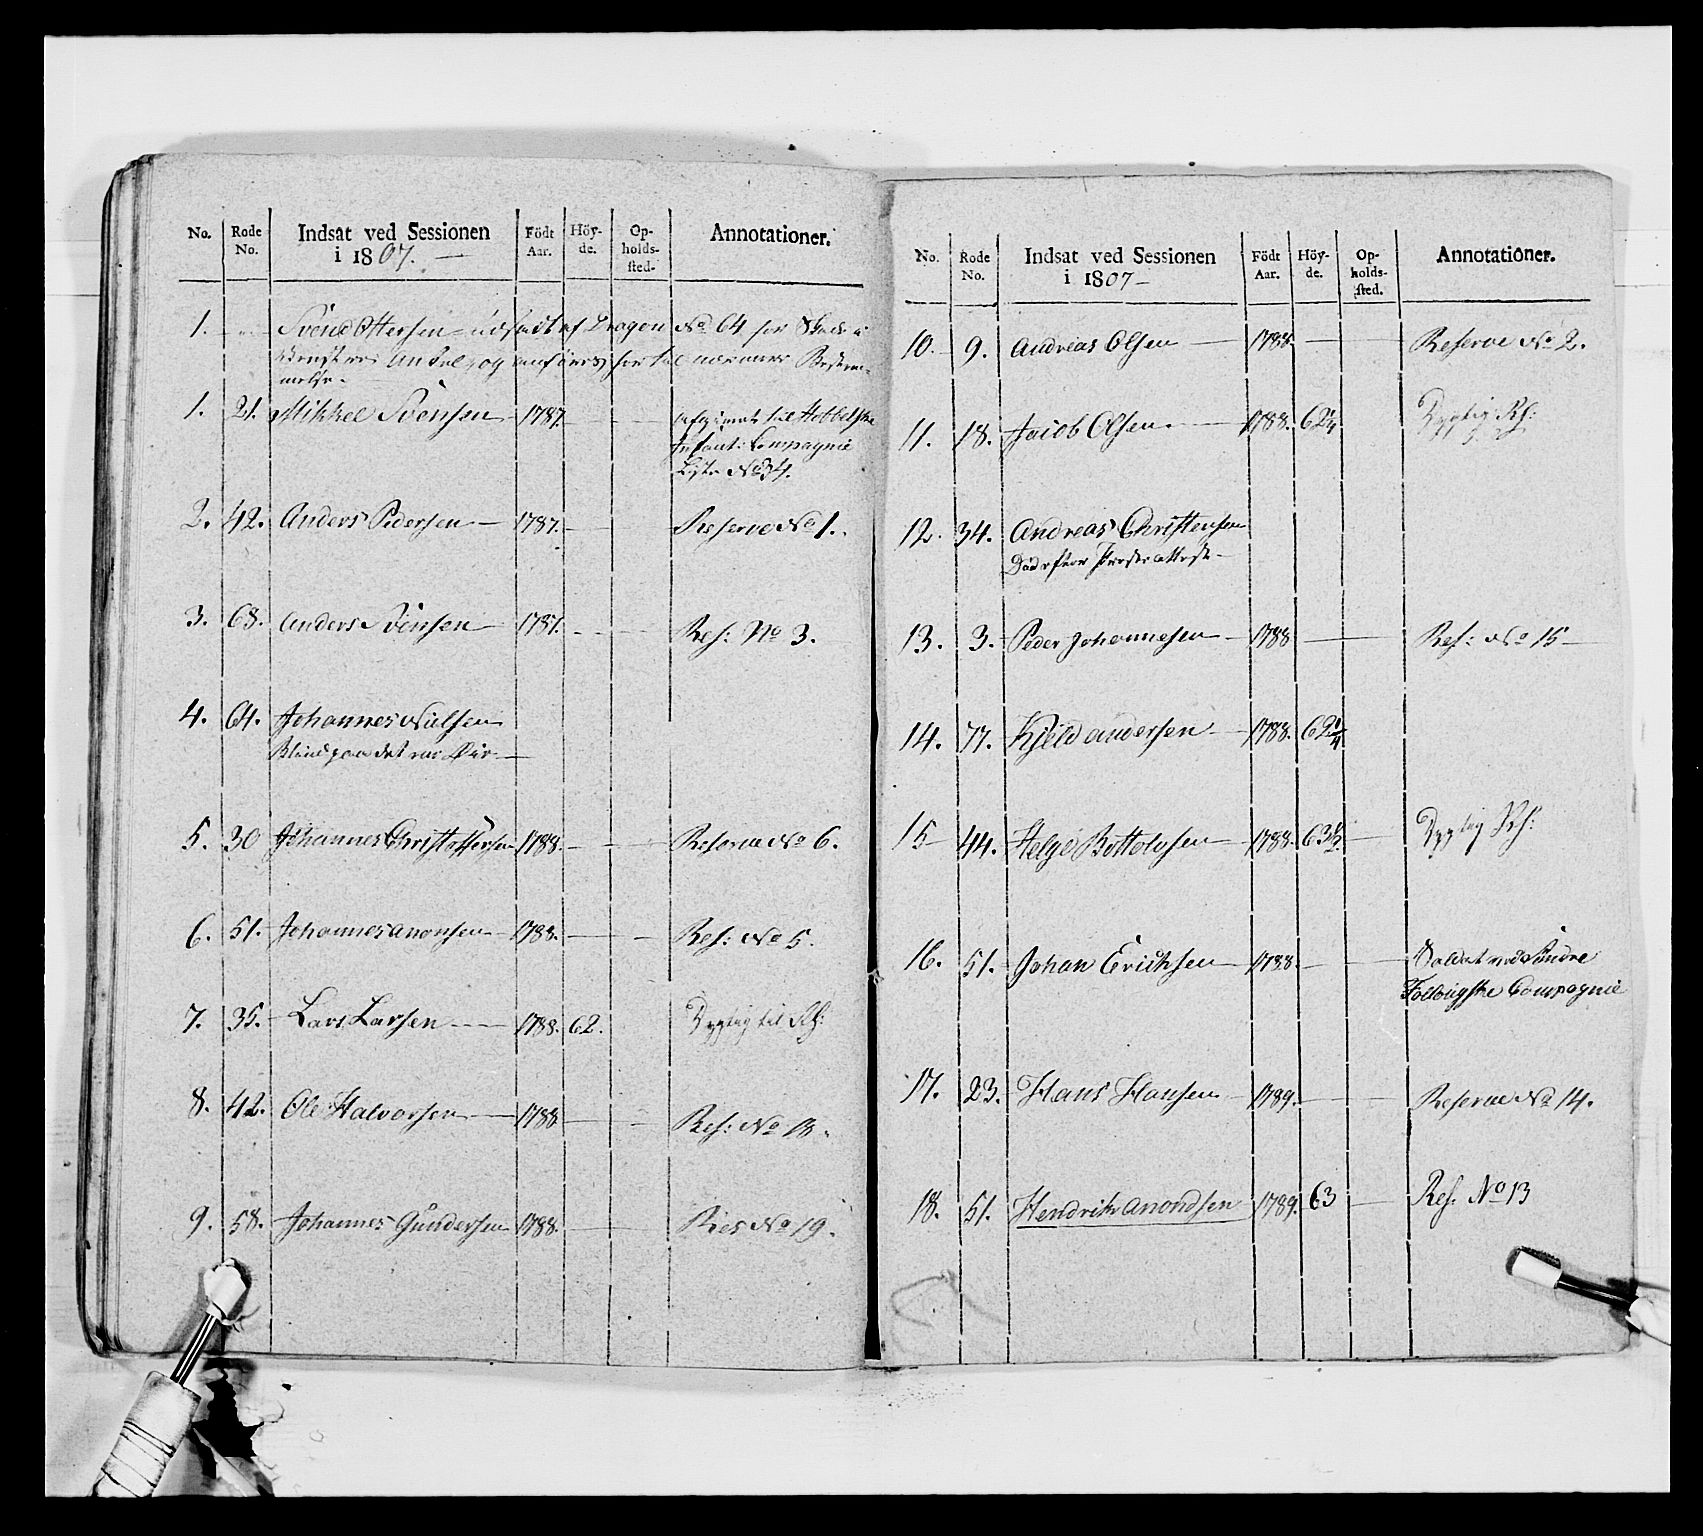 No. Rode No. Indsat ved Sessionen i 1807. Födt Aar. Höyde. Opholdssted. Annotationer.
1. Svend Ottersen udsadt af Dragon No 64 for
og anföres her til nærmere Bestem-
melse.
1. 21. Mikkel Svensen 1787. til
Infant: Compagnie
Liste No 34.
2. 42. Anders Pedersen 1787. Reserve No 1.
3. 68. Anders Svensen 1787. Res: No 3.
4. 64. Johannes Nielsen
Blind paa det ene Öie
5. 30 Johannes Christophersen 1788. Reserve No 6.
6. 51. Johannes Anonsen 1788. Res: No 5.
7. 35. Lars Larsen 1788. 62. Dygtig til Rs:
8. 42. Ole Halvorsen 1788 Res: No 18.
9. 58. Johannes Gundersen 1788. Res No 19.
No. Rode No. Indsat ved Sessionen i 1807 Födt Aar. Höyde. Opholdssted. Annotationer.
10. 9. Andreas Olsen 1788. Reserve No 2.
11. 18. Jacob Olsen 1788. 62 1/4 Dygtig Rs:
12. 34. Andreas Christensen
Död efter Præste attest
13. 3. Peder Johannesen 1788 Res: No 15
14. 77. Kjeld Andersen 1788. 62 1/4
15 44. Helge Bottolvsen 1788. 63 1/2 Dygtig Rs:
16. 51. Johan Erichsen 1788. Soldat ved Söndre
Follougske Compagnie
17. 23. Hans Hansen 1789. Reserve No 14.
18. 51. Hendrik Anondsen 1789. 63 Res. No 13